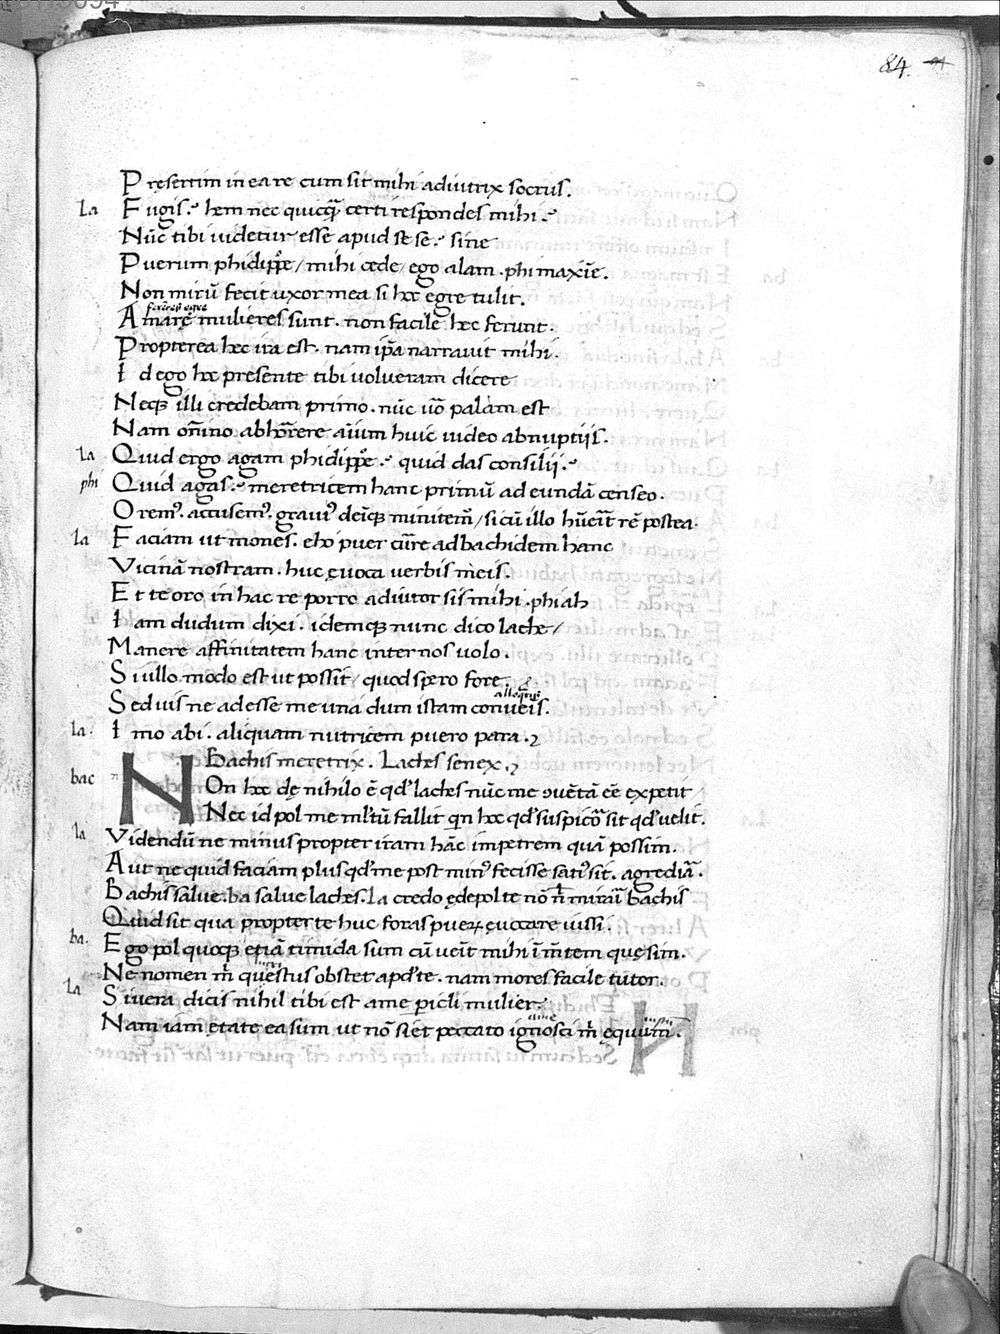 84.
Pręsertim in ea re cum sit mihi adiutrix socrus.
La Fugis? hem nec quicq̃ certi respondes mihi?
Nũc tibi uidetur esse apud se se? sine
Puerum phidippe / mihi cede / ego alam. phi maxiẽ.
Non mirũ fecit uxor mea si hoc egre tulit.
Amarę mulieres sunt. non facile hęc ferunt.
Propterea hęc ira est. nam ip̃a narrauit mihi.
Id ego hoc presente tibi uolueram dicere
Neq; illi credebam primo. nũc uõ palam est
Nam om̃ino abhorrere aĩum huic uideo abnuptiis.
La Quid ergo agam phidippe? quid das consilii?
phi Quid agas? meretricem hanc primũ ad eundã censeo.
Orem9. accusem9. graui9 deĩq; minitem̃ / si cũ illo hũerit rẽ postea.
La Faciam ut mones. eho puer cũre ad bachidem hanc
Vicinã nostram. huc ęuoca uerbis meis.
Et te oro in hac re porro adiutor sis mihi. phi ah
Iam dudum dixi. idemq; nunc dico lache /
Manere affinitatem hanc inter nos uolo.
Si ullo modo est ut possit / quod spero fore.
Sed uis ne adesse me una dum istam conueis.
La. Imo abi. aliquam nutricem puero para.
Bachis meretrix. Laches senex.
bac NOn hoc dę nihilo ẽ qd' laches nũc me ɔuẽtã eẽ expetit
Nec id pol me ml'tũ fallit qin hoc qd' suspicor sit qd' uelit.
la Videndũ ne minus propter iram hãc impetrem quã possim.
Aut ne quid faciam plus qd' me post min9 fecisse sati9 sit. agrediar.
Bachis salue. ba salue laches. La credo ędepol te nõ nl mirari bachis
Quid sit qua propter te huc foras puerum ęuocare iussi.
ba. Ego pol quoq; etiã timida sum cũ ueĩt mihi ĩ mẽtem quę sim.
Ne nomen m̃ questus obstet apd' te. nam mores facile tutor.
La Si uera dicis nihil tibi est a me pericli mulier.
Nam iam ętate ea sum ut nõ siet peccato ignosci m̃ ęquum.